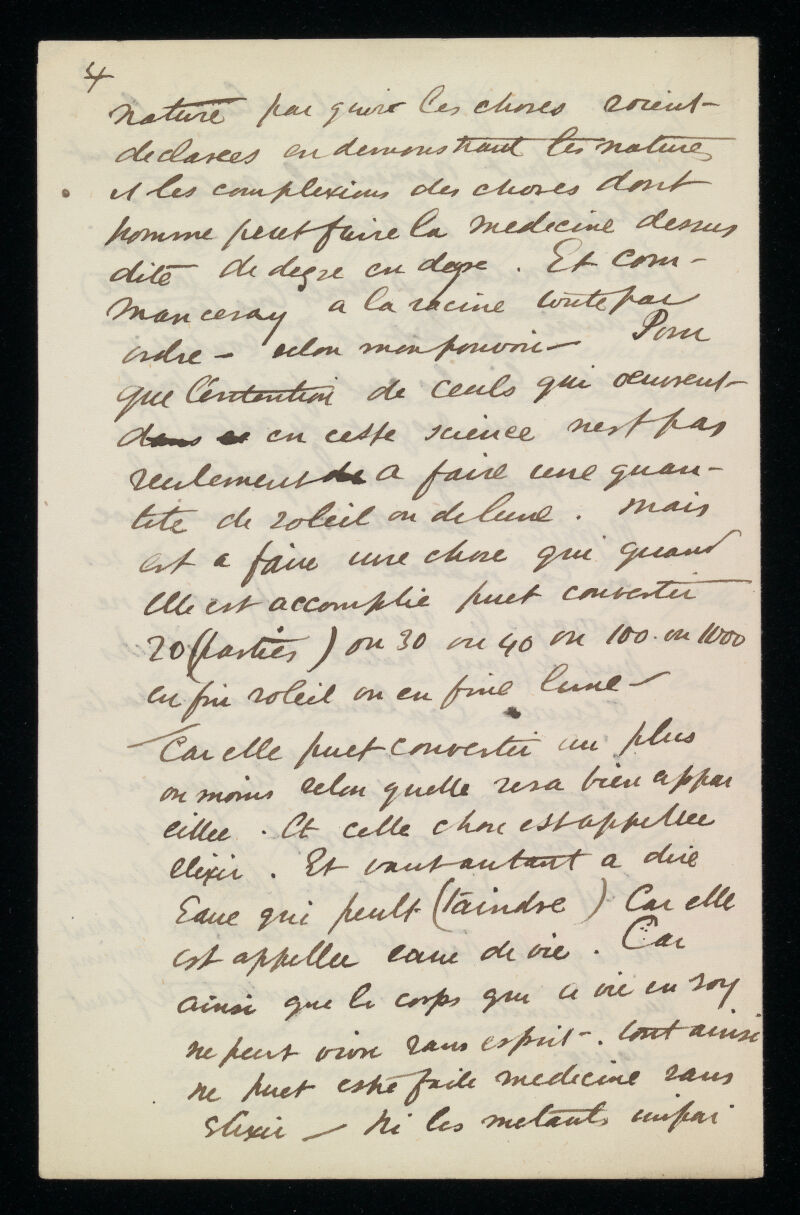 4
nature par quoi les choses soient
declarees en demonstrant les natures
et les complexions des choses dont
homme peut faire la medecine dessus
dite de degre en degre . Et com-
manceray a la racine toute par
ordre - selon mon pouvoir - Pour
que l'entention de ceuls qui oeuvrent
dans ce en ceste science nest pas
seulement de a faire une quan-
tite de soleil ou de lune . mais
est a faire une chose qui quand
elle est accomplie puet convertir
20 (parties) ou 30 ou 40 ou 100 ou 1000
en fin soleil ou en fine lune -
Car elle puet convertir au plus
ou moins selon quelle sera bien appar
eillee . Et celle chose est appellee
elixir . Et vaut autant a dire
Eaue qui peult (taindre) Car elle
est appellee eaue de vie . Car
ainsi que le corps qui a vie en soy
ne peut vivre sans esprit . tout ainsi
ne puet estre faite medecine sans
Elixir - Ni les metauls impar